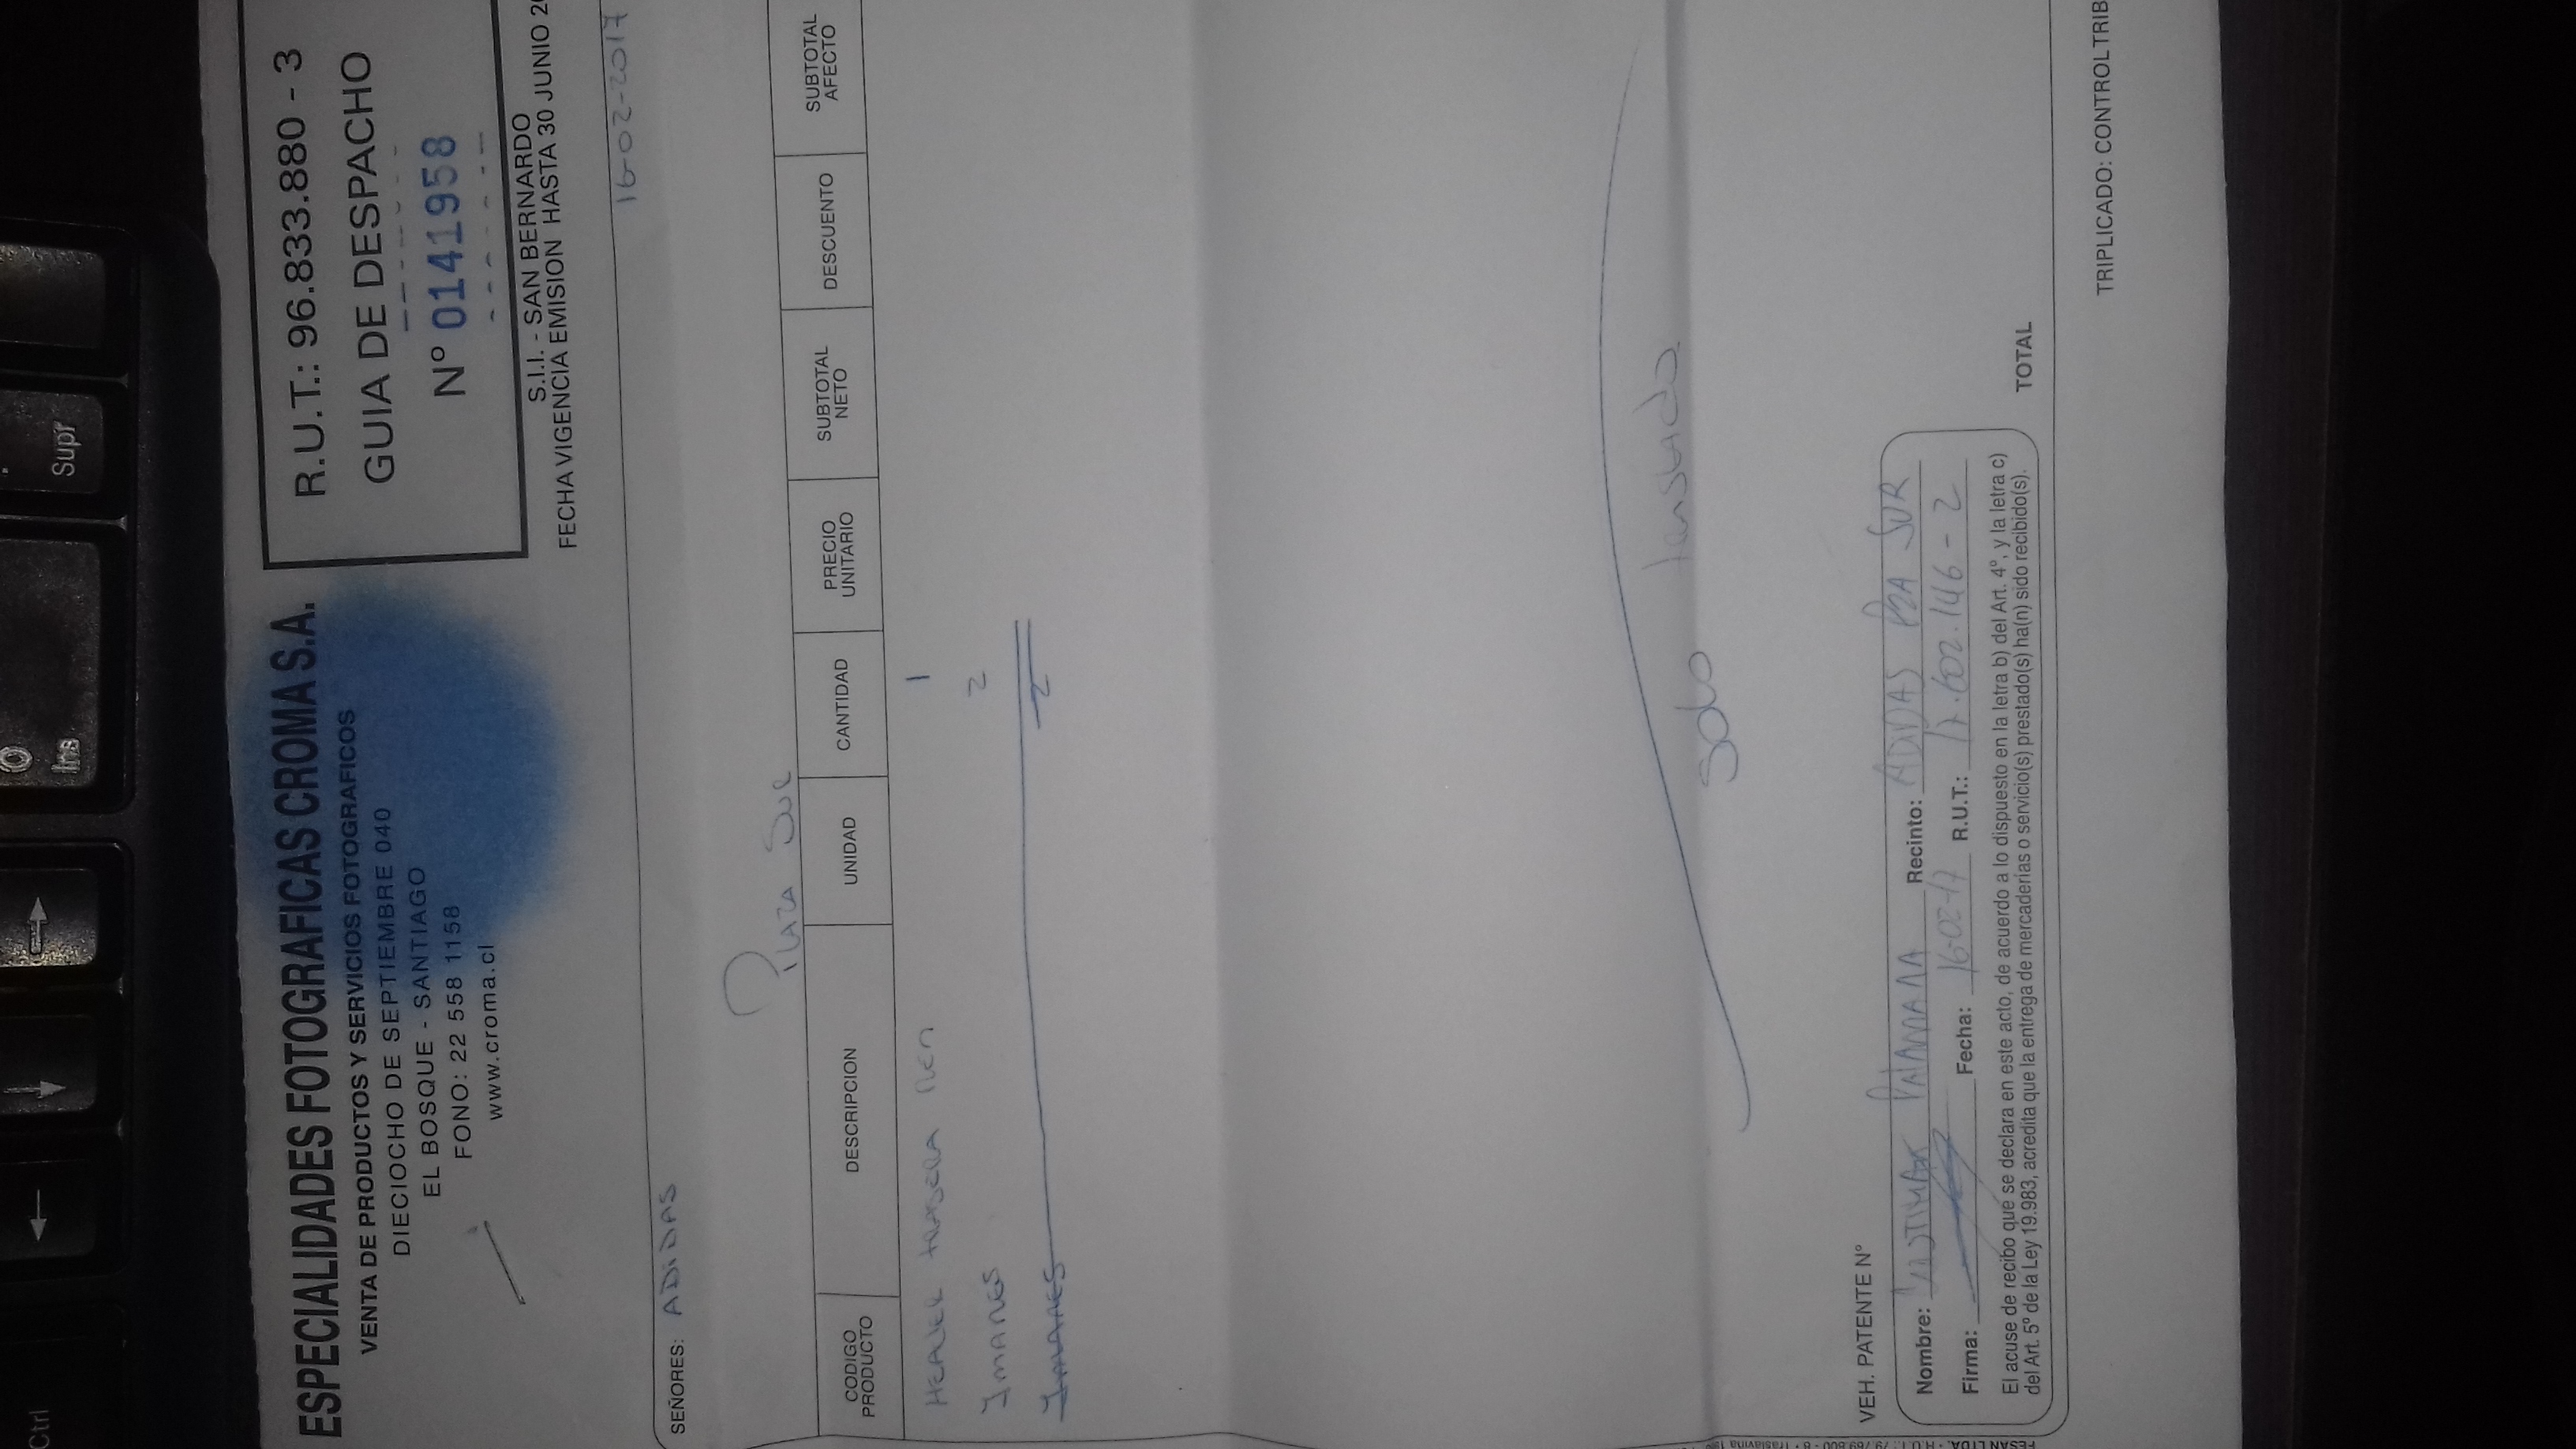 Ctrl
0
Ins
Supr
ESPECIALIDADES FOTOGRAFICAS CROMA S.A.
VENTA DE PRODUCTOS Y SERVICIOS FOTOGRAFICOS
DIECIOCHO DE SEPTIEMBRE 040
EL BOSQUE - SANTIAGO
FONO: 22 558 1158
www.croma.cl
R.U.T.: 96.833.880 - 3
GUIA DE DESPACHO
Nº 0141958
S.I.I. - SAN BERNARDO
FECHA VIGENCIA EMISION HASTA 30 JUNIO
16-02-2017
SEÑORES: ADIDAS
PLAZA SUR
CODIGO PRODUCTO DESCRIPCION UNIDAD CANTIDAD PRECIO UNITARIO SUBTOTAL NETO DESCUENTO SUBTOTAL AFECTO
TRASERA 1
IMANES 2
IMANES 2
solo traslado
VEH. PATENTE Nº
Nombre: Recinto: ADIDAS PZA SUR
Firma: Fecha: 16-02-17 R.U.T.: 17.602.146-2
El acuse de recibo que se declara en este acto, de acuerdo a lo dispuesto en la letra b) del Art. 4º, y la letra c)
del Art. 5º de la Ley 19.983, acredita que la entrega de mercaderias o servicio(s) prestado(s) ha(n) sido recibido(s).
TOTAL
TRIPLICADO: CONTROL TRIB